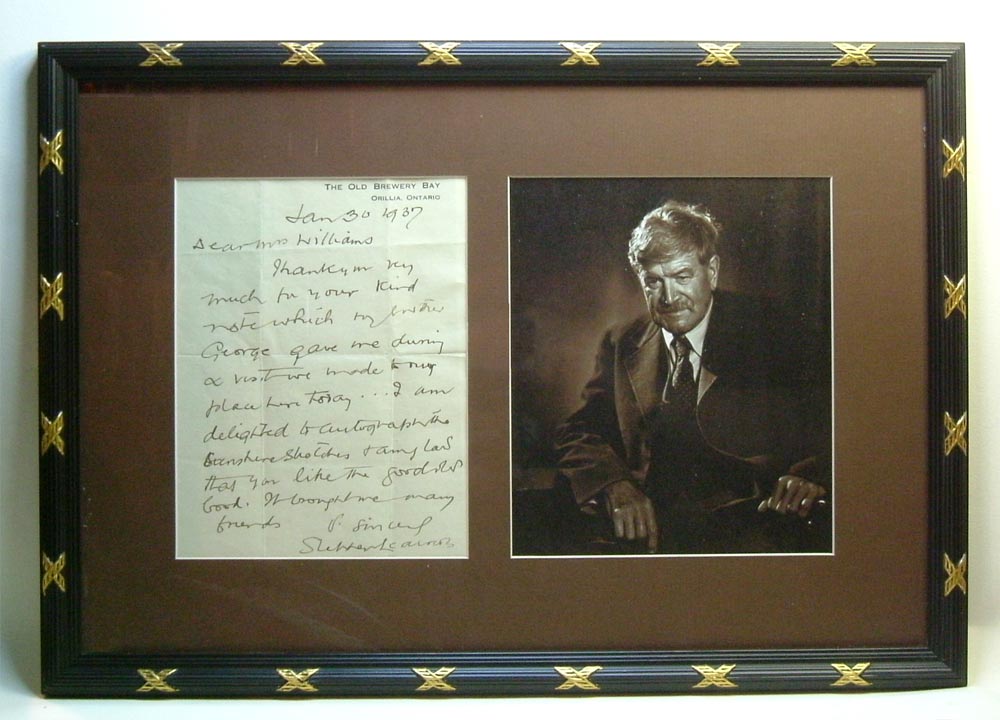 THE OLD BREWERY BAY
ORILLIA, ONTARIO
Jan 30 1937
Dear Mrs Williams
Thank you very
much for your kind
note which my brother
George gave me during
a visit we made to my
place here today ... I am
delighted to autograph the
Sunshine Sketches & am glad
that you like the good old
book. It brought me many
friends
Stephen Leacock